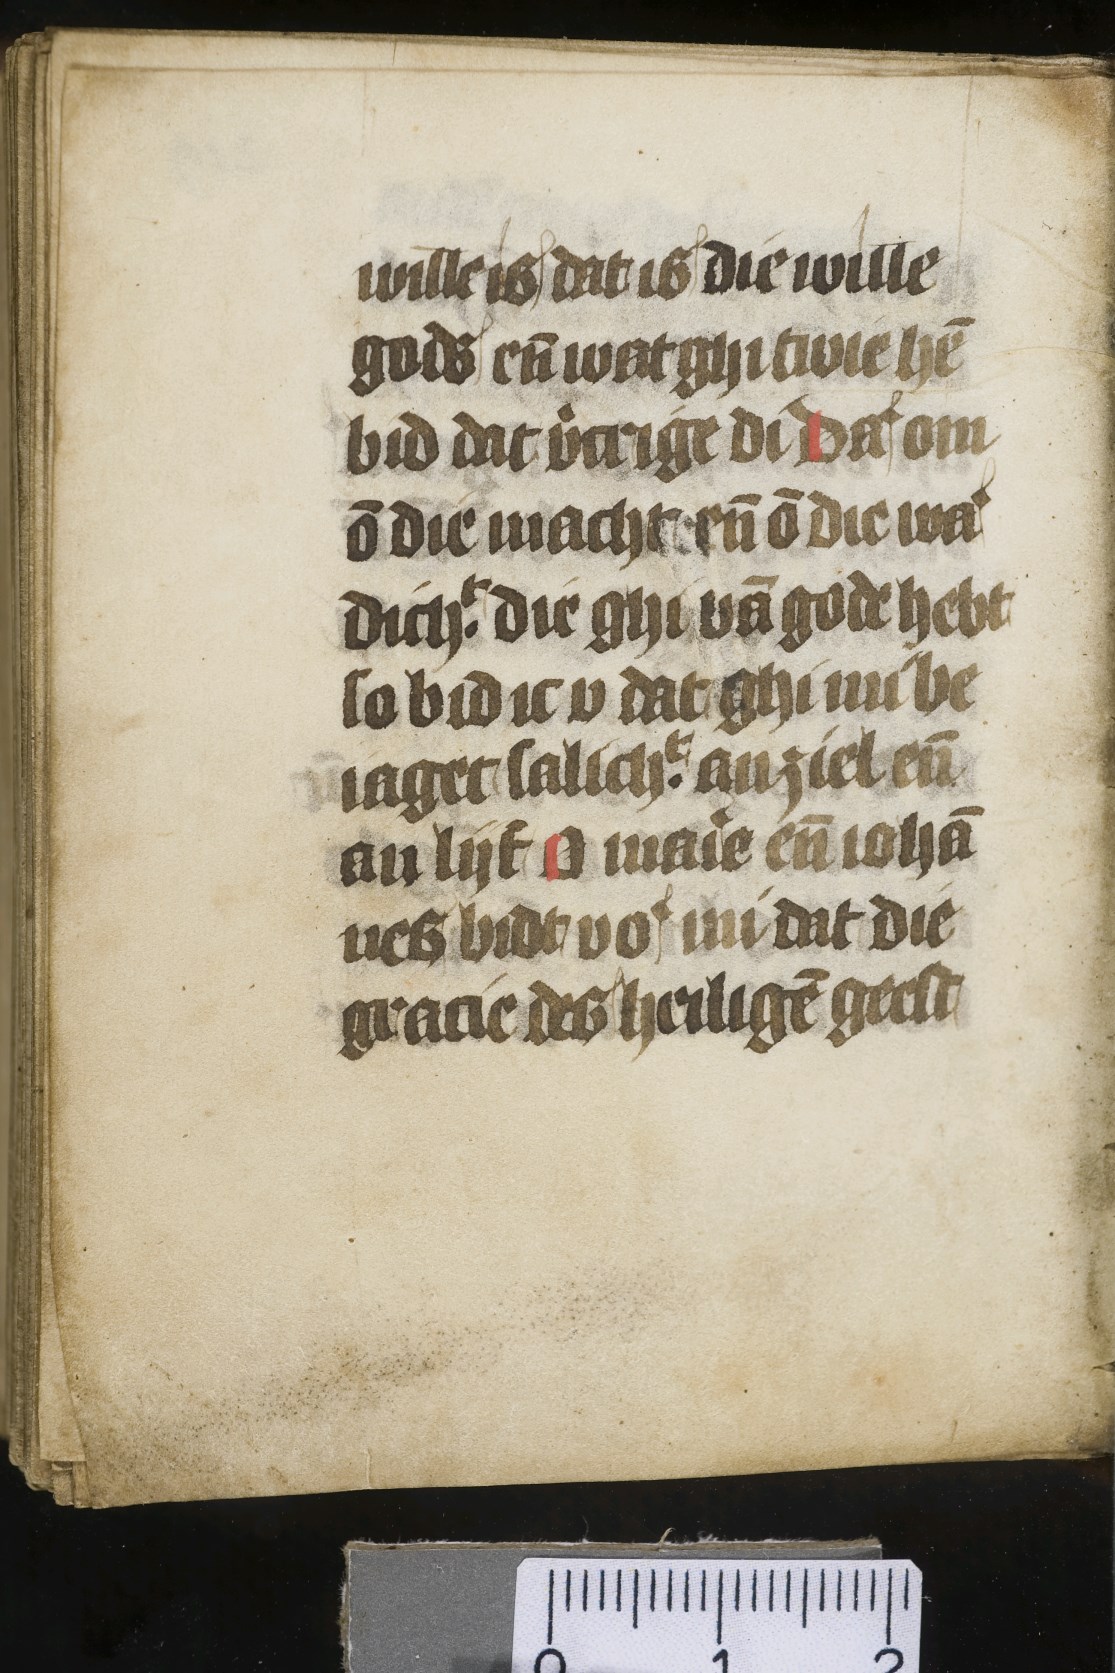 wille is dat is die wille
gods en̄ wat ghi twie hē
bid dat v̾crige di Da͛ om
ō die macht en̄ ō die wa͛
dich.ͭ die ghi vā gode hebt
so bid ic v dat ghi mi be
iaget salich.ͭ an ziel en̄
an lijf O maͥe en̄ iohā
nes bidt vo͛ mi dat die
gracie des heiligē geest
0 1 2